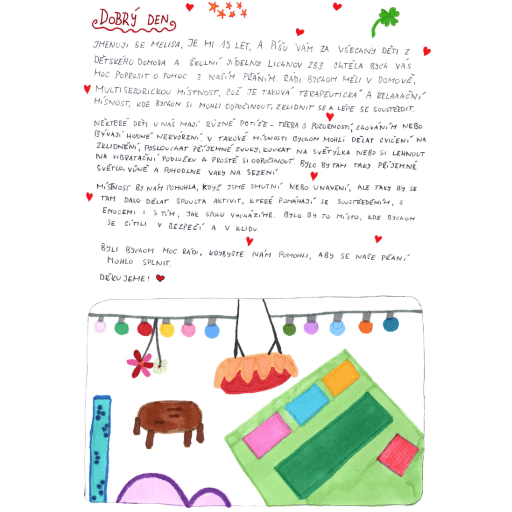 DOBRÝ DEN,
JMENUJI SE MELISA, JE MI 15 LET, A PÍŠU VÁM ZA VŠECHNY DĚTI Z
DĚTSKÉHO DOMOVA A ŠKOLNÍ JÍDELNY LICHNOV 253. CHTĚLA BYCH VÁS
MOC POPROSIT O POMOC S NAŠÍM PŘÁNÍM. RÁDI BYCHOM MĚLI V DOMOVĚ,
MULTISENZORICKOU MÍSTNOST, COŽ JE TAKOVÁ TERAPEUTICKÁ A RELAXAČNÍ
MÍSTNOST, KDE BYCHOM SI MOHLI ODPOČINOUT, ZKLIDNIT SE A LÉPE SE SOUSTŘEDIT.
NĚKTERÉ DĚTI U NÁS MAJÍ RŮZNÉ POTÍŽE - TŘEBA S POZORNOSTÍ, CHOVÁNÍM NEBO
BÝVAJÍ HODNĚ NERVÓZNÍ. V TAKOVÉ MÍSTNOSTI BYCHOM MOHLI DĚLAT CVIČENÍ NA
ZKLIDNĚNÍ, POSLOUCHAT PŘÍJEMNÉ ZVUKY, KOUKAT NA SVĚTÝLKA NEBO SI LEHNOUT
NA VIBRAČNÍ PODLOŽKU A PROSTĚ SI ODPOČINOUT. BYLO BY TAM TAKY PŘÍJEMNÉ
SVĚTLO, VŮNĚ A POHODLNÉ VAKY NA SEZENÍ.
MÍSTNOST BY NÁM POMOHLA, KDYŽ JSME SMUTNÍ NEBO UNAVENÍ, ALE TAKY BY SE
TAM DALO DĚLAT SPOUSTA AKTIVIT, KTERÉ POMÁHAJÍ SE SOUSTŘEDĚNÍM, S
EMOCEMI I S TÍM, JAK SPOLU VYCHÁZÍME. BYLO BY TO MÍSTO, KDE BYCHOM
SE CÍTILI V BEZPEČÍ A V KLIDU.
BYLI BYCHOM MOC RÁDI, KDYBYSTE NÁM POMOHLI, ABY SE NAŠE PŘÁNÍ
MOHLO SPLNIT.
DĚKUJEME!